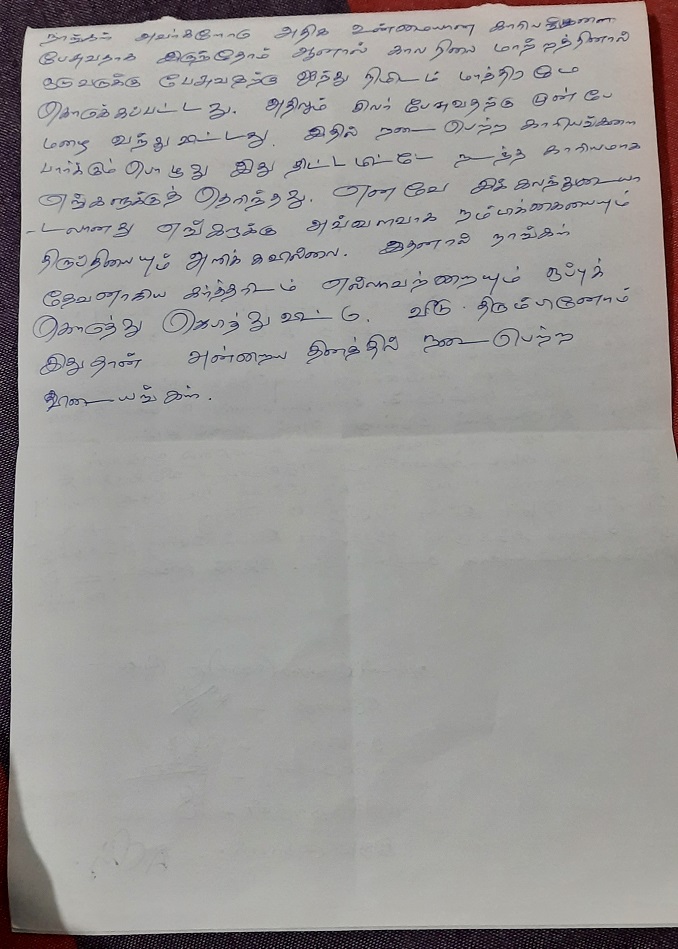 நாங்கள் அவர்களோடு அதிக உண்மையான காரியங்களை
பேசுவதாக இருந்தோம் ஆனால் கால நிலை மாற்றத்தினால்
ஒருவருக்கு பேசுவதற்கு ஐந்து நிமிடம் மாத்திரமே
கொடுக்கப்பட்டது. அதிலும் சிலர் பேசுவதற்கு முன்பே
மழை வந்து விட்டது. இதில் நடைபெற்ற காரியங்களை
பார்க்கும் பொழுது இது திட்டமிட்டே நடந்த காரியமாக
எங்களுக்குத் தெரிந்தது. எனவே இக் கலந்துரையா
-டலானது எங்களுக்கு அவ்வளவாக நம்பிக்கையையும்
திருப்தியையும் அளிக்கவில்லை. இதனால் நாங்கள்
தேவனாகிய கர்த்தரிடம் எல்லாவற்றையும் ஒப்புக்
கொடுத்து ஜெபித்து விட்டு. வீடு திரும்பினோம்
இதுதான் அன்றைய தினத்தில் நடைபெற்ற
விடையங்கள்.